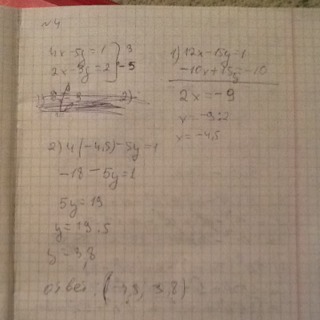 №4
4x-5y=1 } 3
2x-3y=2 } -5
1) 12x-15y=1
-10x+15y=-10
2x=-9
x=-9:2
x=-4,5
2) 4(-4,5)-5y=1
-18-5y=1
5y=19
y=19:5
y=3,8
ответ (-4,5; 3,8)